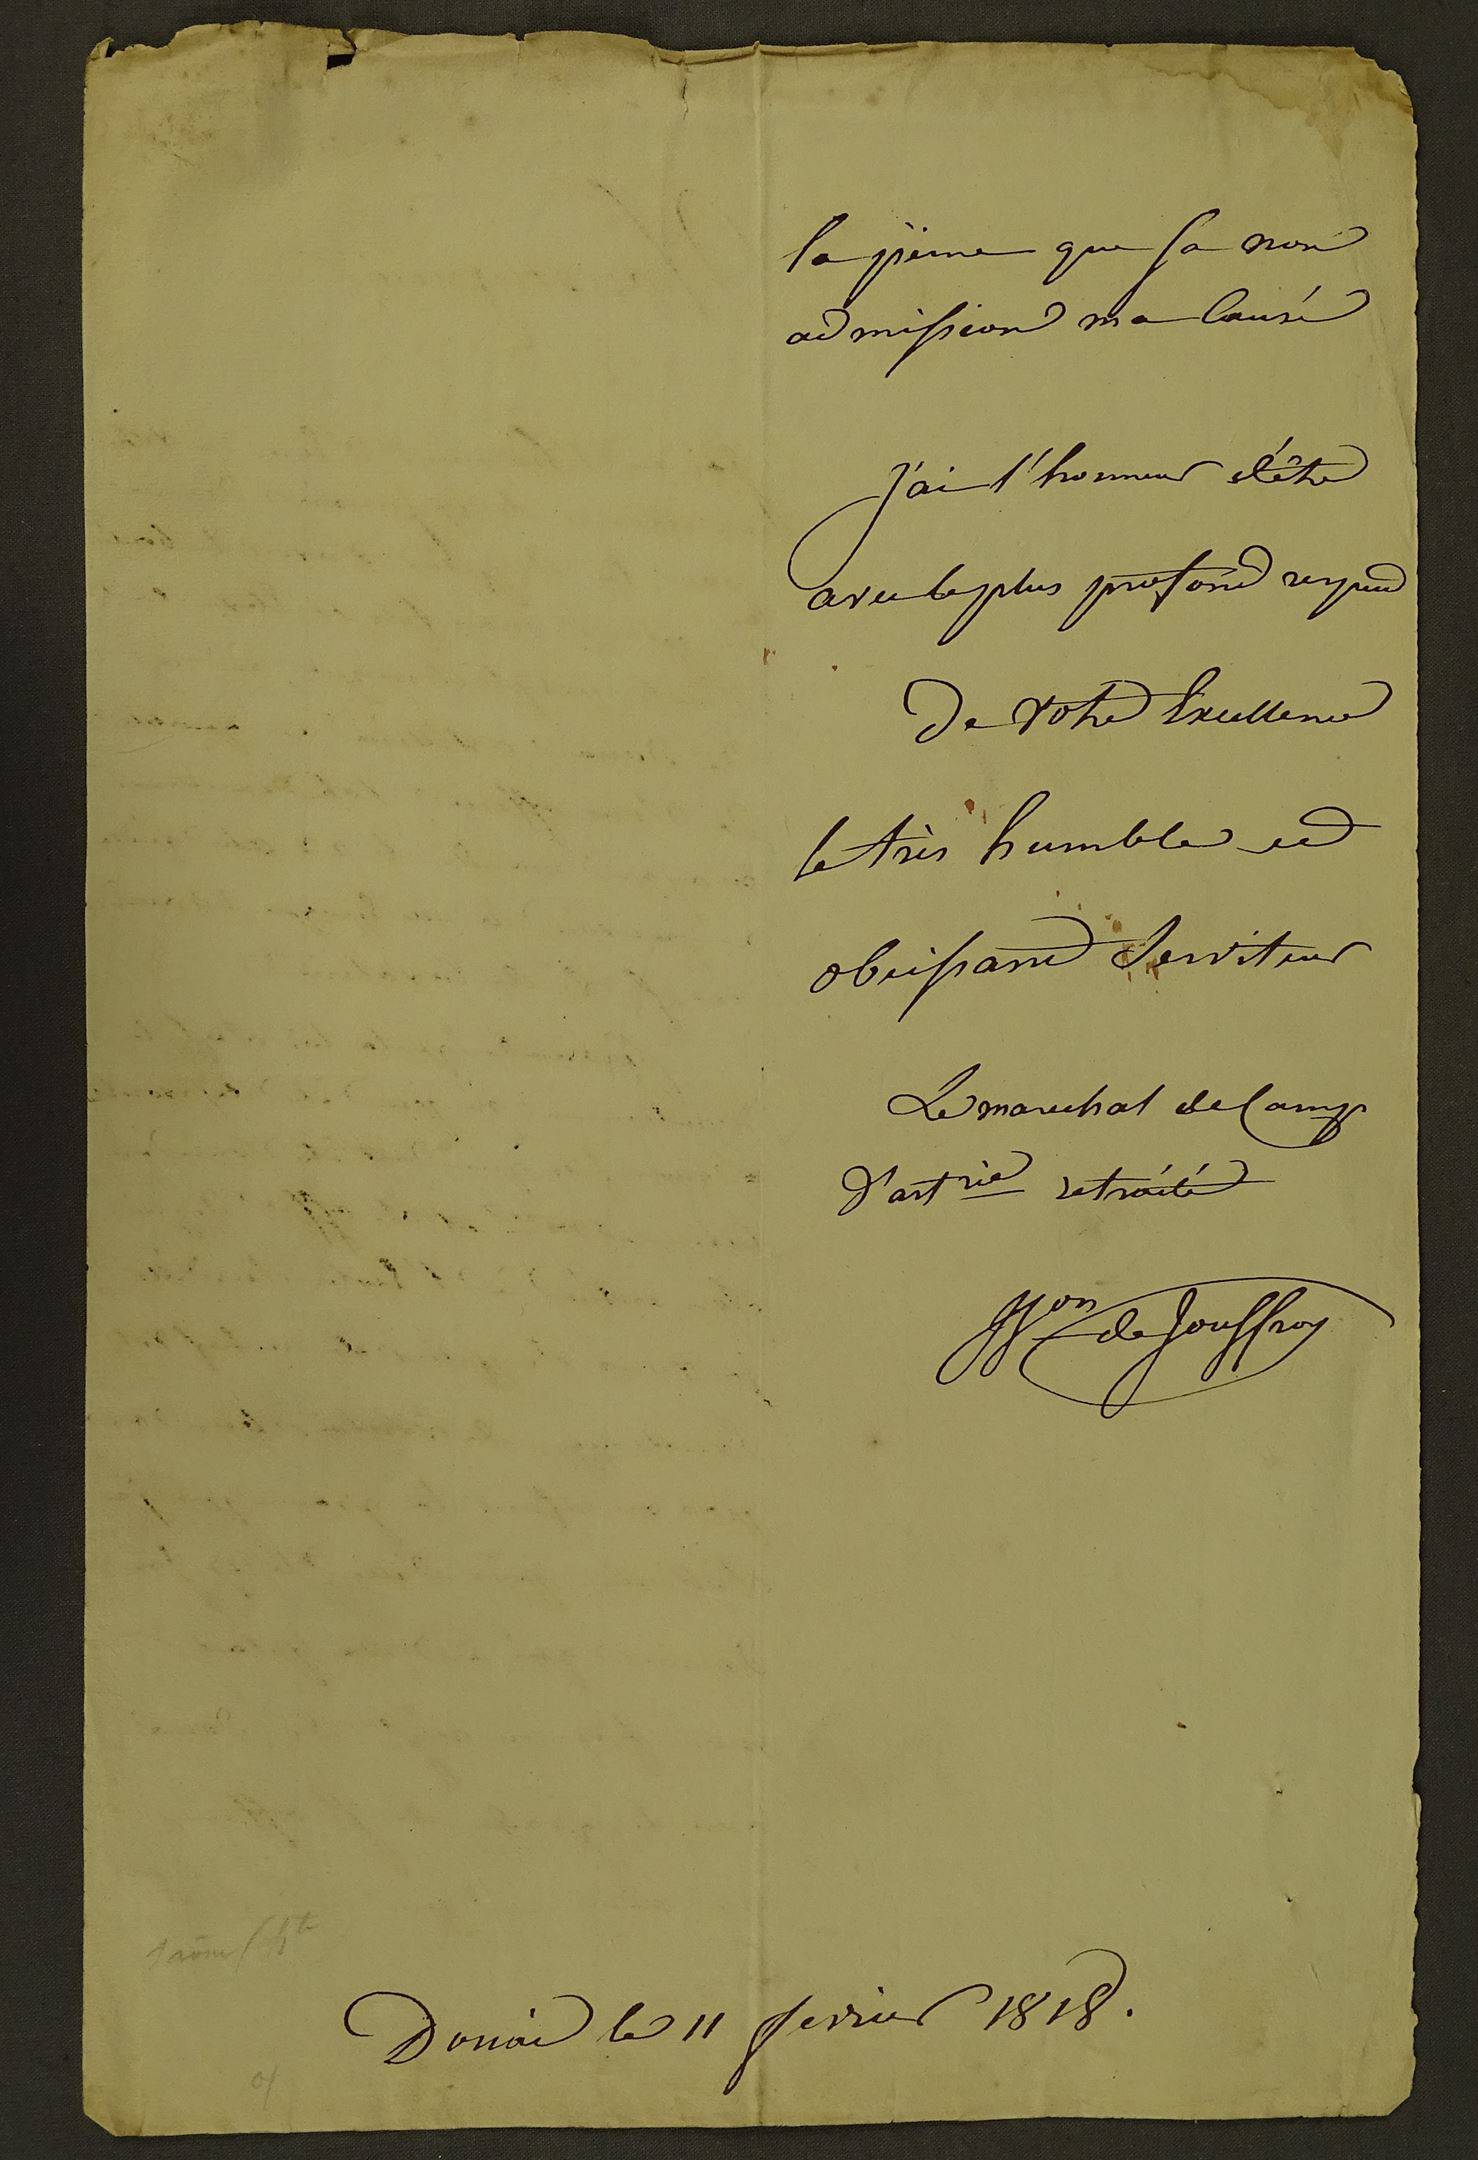 la peine que sa non
admission ma causé
J'ai l'honneur d'être
avec le plus profond respect
De votre Excellence
le très humble et
obeissant serviteur
Le marechal de Camp
D'art.rie retraité
de Jouffroy
Douai le 11 fevrier 1818.